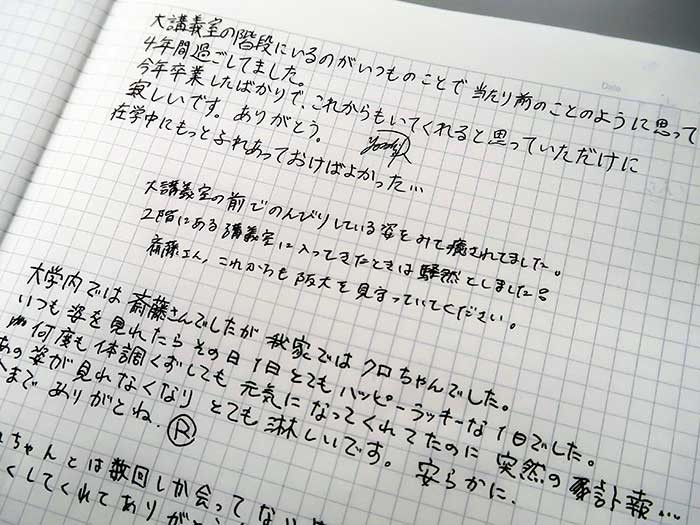 大講義室の階段にいるのがいつものことで当たり前のことのように思って
4年間過ごしてました。
今年卒業したばかりで、これからもいてくれると思っていただけに
寂しいです。ありがとう。
在学中にもっとふれあっておけばよかった…
大講義室の前でのんびりしている姿をみて癒されてました。
2階にある講義室に入ってきたときは騒然としました
斎藤さん、これからも阪大を見守っていてください。
大学内では斎藤さんでしたが我家ではクロちゃんでした。
いつも姿を見れたらその日1日とてもハッピーラッキーな1日でした。
何度も体調くずしても元気になってくれてたのに突然の訃報…
あの姿が見れなくなりとても淋しいです。安らかに.
までありがとね. R
ちゃんとは数回しか会ってな
くしてくれてありが